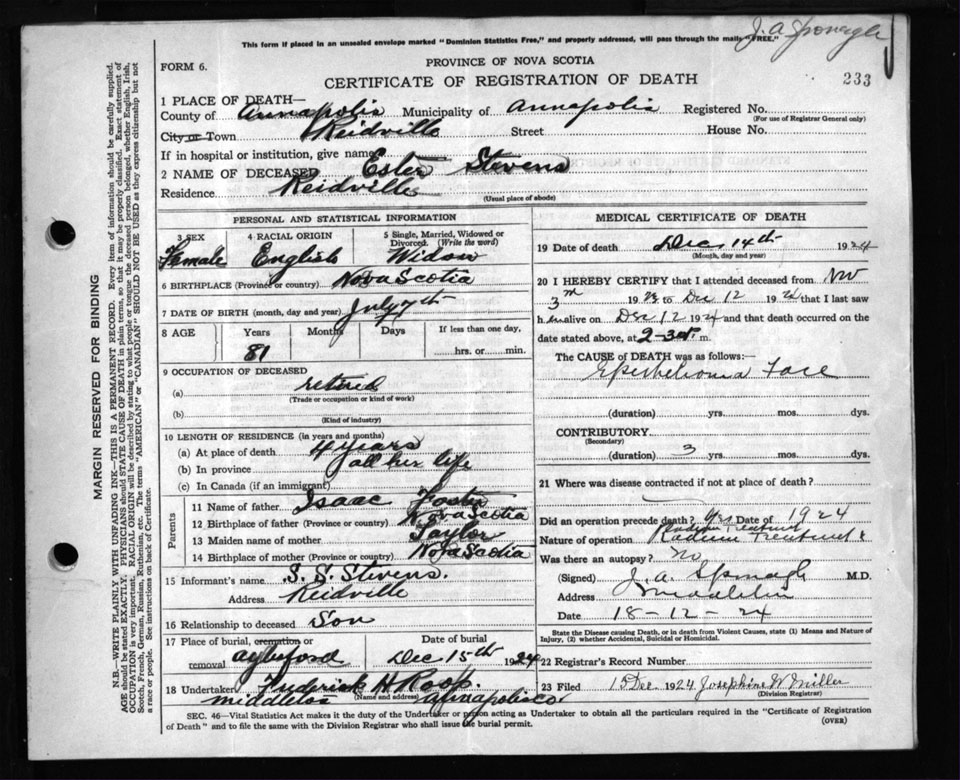 J. A. Sponagle
This form if placed in an unsealed envelope marked "Dominion Statistics Free," and properly addressed, will pass through the mails "FREE."
FORM 6.
PROVINCE OF NOVA SCOTIA
CERTIFICATE OF REGISTRATION OF DEATH
233
1 PLACE OF DEATH—
County of Annapolis Municipality of Annapolis Registered No.
(For use of Registrar General only)
City or Town Reidville Street House No.
If in hospital or institution, give name
2 NAME OF DECEASED Ester Stevens
Residence Reidville
(Usual place of abode)
PERSONAL AND STATISTICAL INFORMATION
3 SEX Female
4 RACIAL ORIGIN English
5 Single, Married, Widowed or Divorced. (Write the word) Widow
6 BIRTHPLACE (Province or country) Nova Scotia
7 DATE OF BIRTH (month, day and year) July 7th
8 AGE Years Months Days If less than one day,
81 hrs. or min.
9 OCCUPATION OF DECEASED
(a) retired
(Trade or occupation or kind of work)
(b)
(Kind of industry)
10 LENGTH OF RESIDENCE (in years and months)
(a) At place of death 4 years
(b) In province all her life
(c) In Canada (if an immigrant)
Parents
11 Name of father Isaac Foster
12 Birthplace of father (Province or country) Nova Scotia
13 Maiden name of mother Taylor
14 Birthplace of mother (Province or country) Nova Scotia
15 Informant's name S. S. Stevens.
Address Reidville
16 Relationship to deceased Son
17 Place of burial, cremation or removal Aylesford
Date of burial Dec 15th 1924
18 Undertaker Frederick H Roop.
(Name and address)
Middleton Annapolis Co
MEDICAL CERTIFICATE OF DEATH
19 Date of death Dec 14th 1924
(Month, day and year)
20 I HEREBY CERTIFY that I attended deceased from Nov
3rd 19 to Dec 12 1924 that I last saw
h er alive on Dec 12 1924 and that death occurred on the
date stated above, at m.
The CAUSE OF DEATH was as follows:—
Epithelioma Face
(duration) yrs. mos. dys.
CONTRIBUTORY
(Secondary)
(duration) 3 yrs. mos. dys.
21 Where was disease contracted if not at place of death?
Did an operation precede death? Yes Date of 1924
Nature of operation Radium Treatment
Was there an autopsy? No
(Signed) J. A. Sponagle M.D.
Address Middleton
Date 18-12-24
State the Disease causing Death, or in death from Violent Causes, state (1) Means and Nature of Injury, (2) whether Accidental, Suicidal or Homicidal.
22 Registrar's Record Number
23 Filed Dec. 1924 Josephine W Miller
(Division Registrar)
SEC. 46—Vital Statistics Act makes it the duty of the Undertaker or person acting as Undertaker to obtain all the particulars required in the "Certificate of Registration
of Death" and to file the same with the Division Registrar who shall issue the burial permit. (OVER)
MARGIN RESERVED FOR BINDING
N.B.—WRITE PLAINLY WITH UNFADING INK—THIS IS A PERMANENT RECORD. Every item of information should be carefully supplied.
AGE should be stated EXACTLY. PHYSICIANS should STATE CAUSE OF DEATH in plain terms, so that it may be properly classified. Exact statement of
OCCUPATION is very important. RACIAL ORIGIN will be described by stating to what people or tongue the deceased person belonged, whether English, Irish,
Scotch, French, German, Russian, Ruthenian, etc. The terms "AMERICAN" or "CANADIAN" SHOULD NOT BE USED as they express citizenship but not
a race or people. See instructions on back of Certificate.